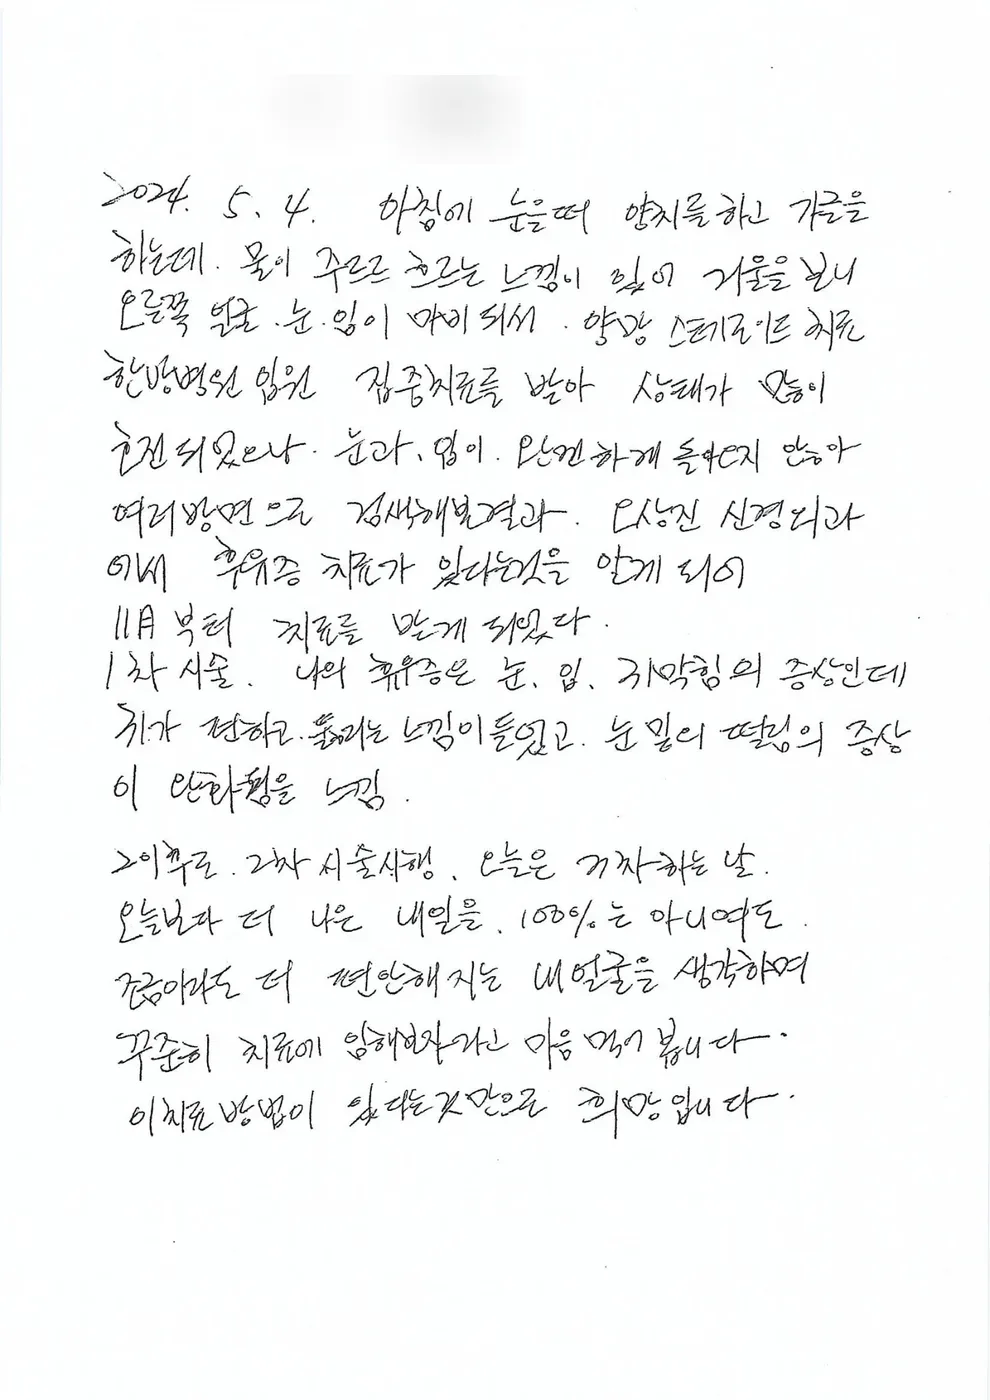 2024. 5. 4. 아침에 눈을떠 양치를하고 가글을
하는데. 물이 주르르 흐르는 느낌이 있어 거울을 보니
오른쪽 얼굴.눈.입이 마비되서. 양방 스테로이드 치료
한방병원 입원 집중치료를 받아 상태가 많이
호전되었으나. 눈과. 입이. 완전하게 돌아오지 않아
여러방면으로 검색해본결과. 오상진 신경외과
에서 후유증 치료가 있다는것을 알게되어
11月부터 치료를 받게되었다.
1차 시술. 나의 후유증은 눈. 입. 귀막힘의 증상인데
귀가 편하고. 뚫리는 느낌이들었고. 눈밑의 떨림의 증상
이 완화됨을 느낌.
그이후로. 2차시술시행. 오늘은 3차하는날.
오늘보다 더 나은 내일을. 100%는 아니여도.
조금이라도 더 편안해지는 내얼굴을 생각하며
꾸준히 치료에 임해보자라고 마음먹어 봅니다.
이치료방법이 있다는것만으로 희망입니다.